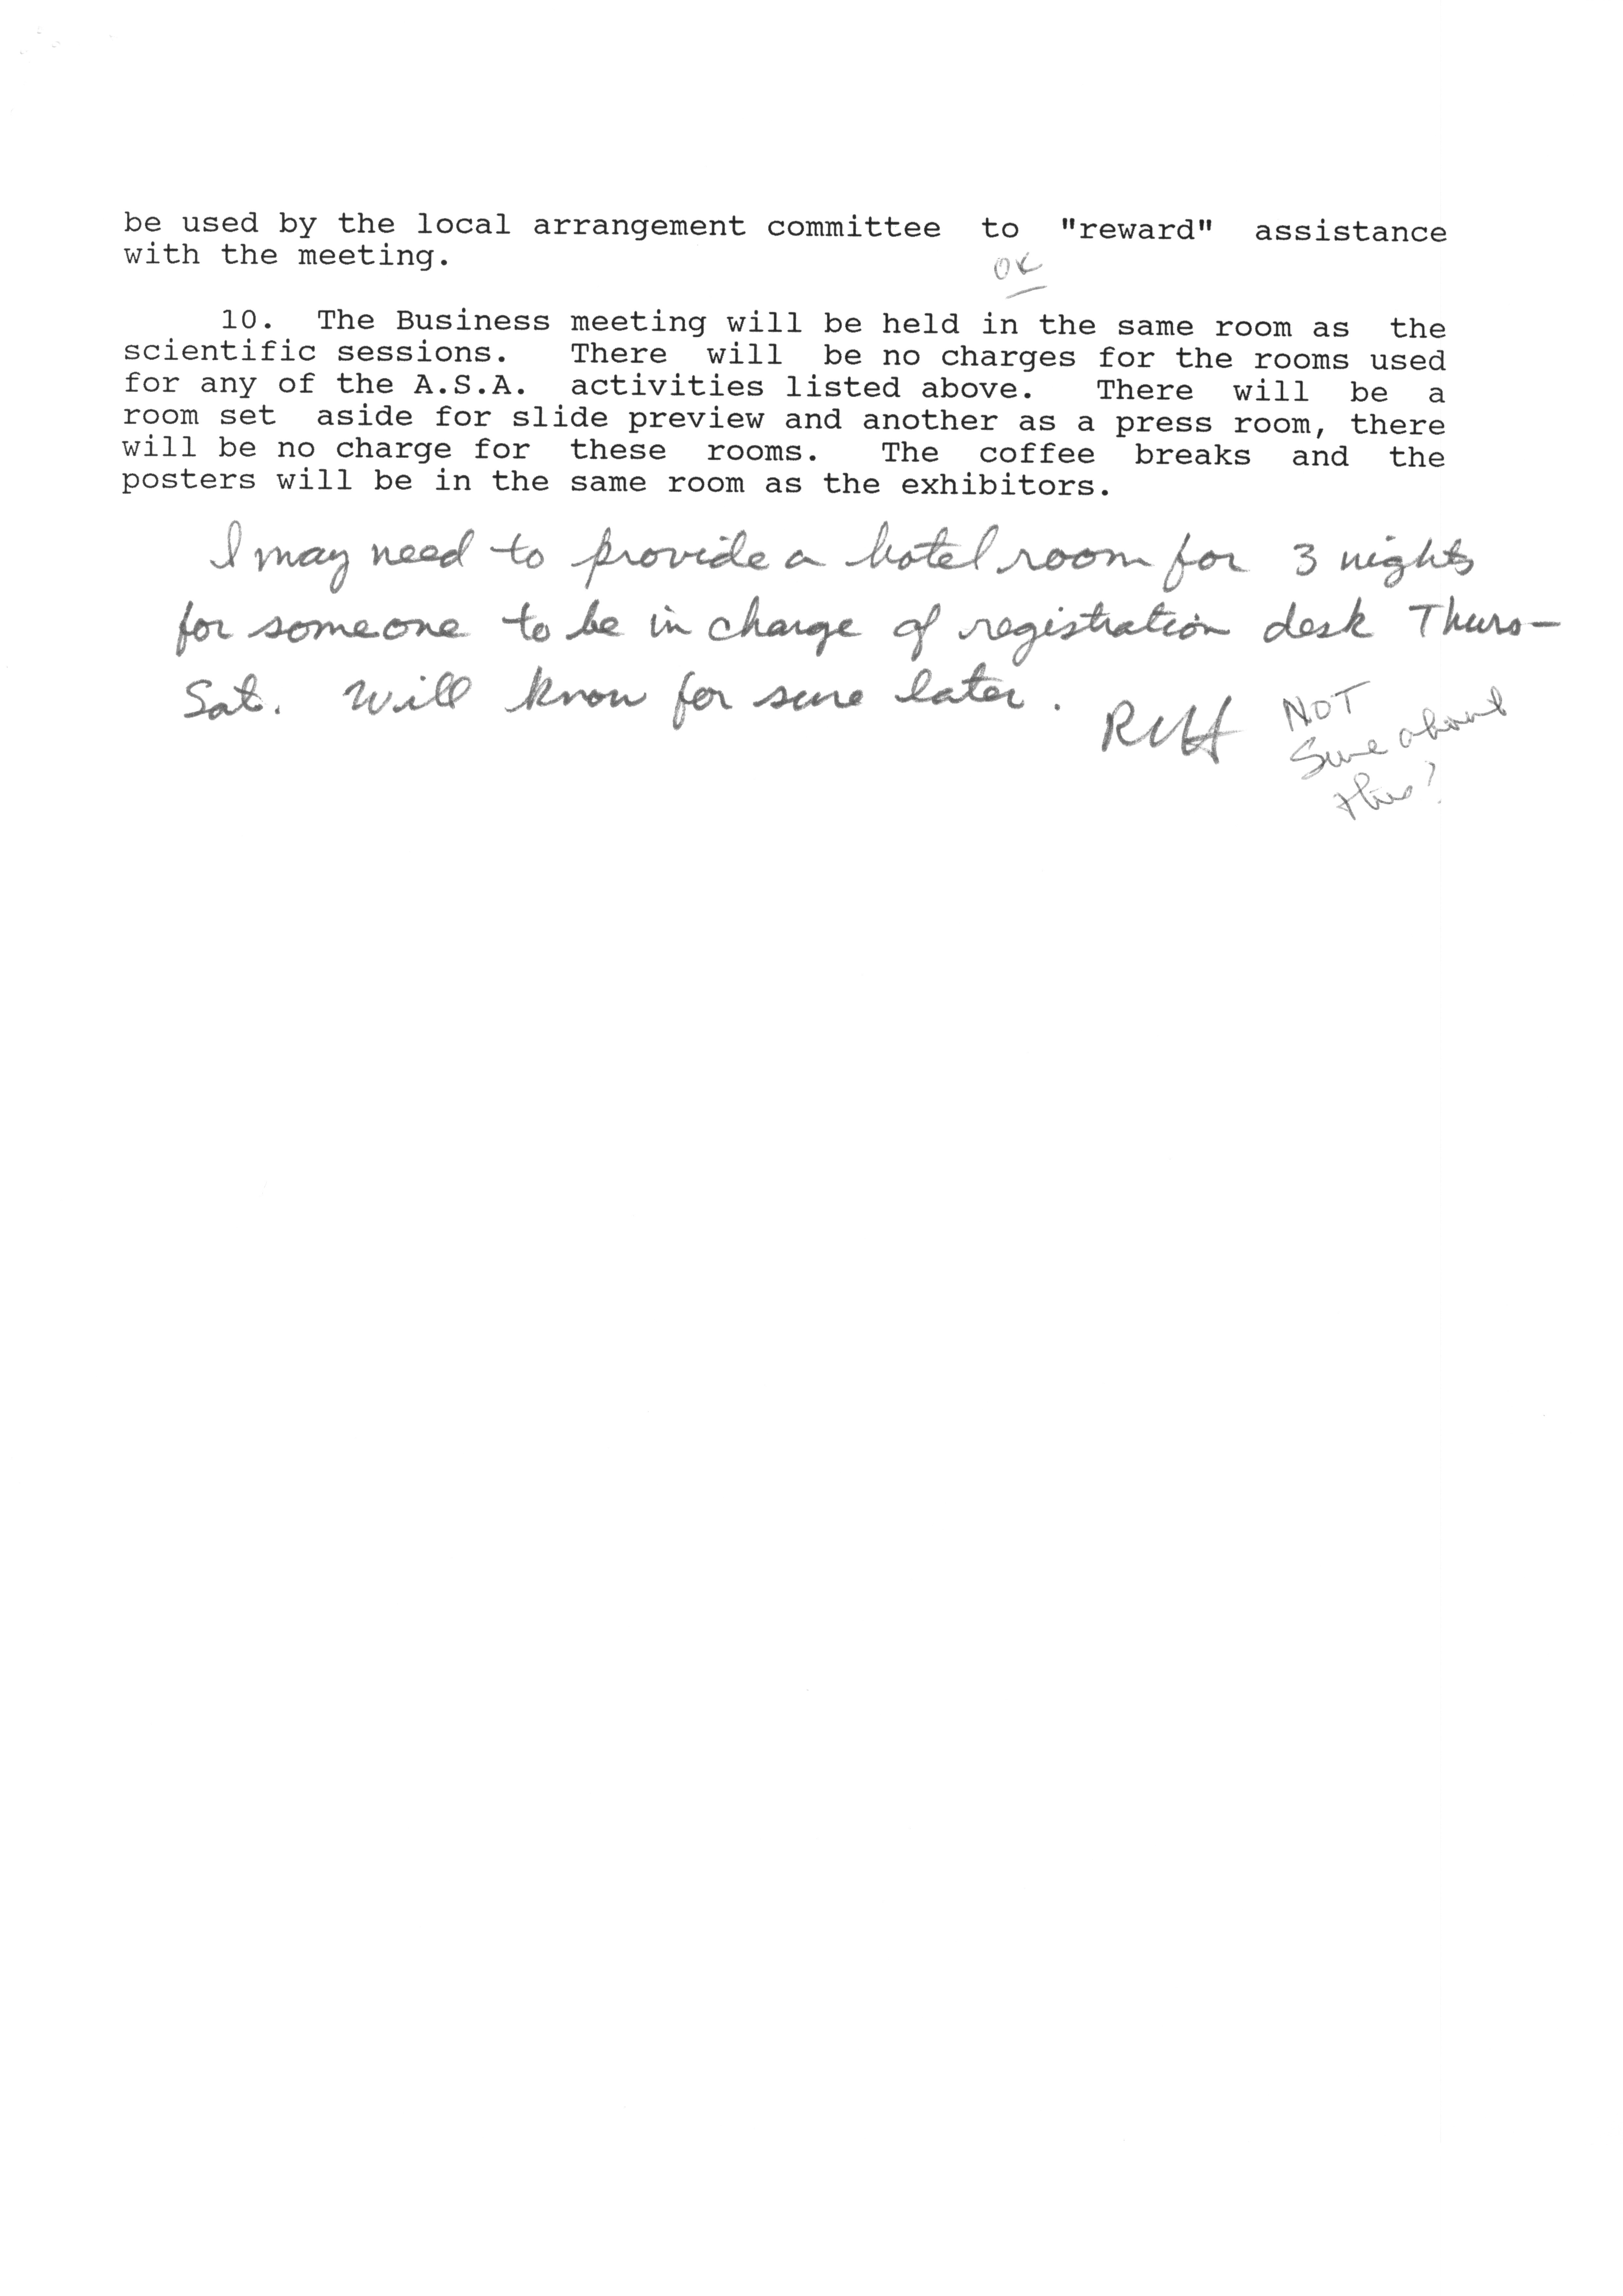 be used by the local arrangement committee to "reward" assistance
with the meeting.
OK
10. The Business meeting will be held in the same room as the
scientific sessions. There will be no charges for the rooms used
for any of the A.S.A. activities listed above. There will be a
room set aside for slide preview and another as a press room, there
will be no charge for these rooms. The coffee breaks and the
posters will be in the same room as the exhibitors.
I may need to provide a hotel room for 3 nights
for someone to be in charge of registration desk Thurs-
Sat. Will know for sure later.
NOT
Sure about
this?